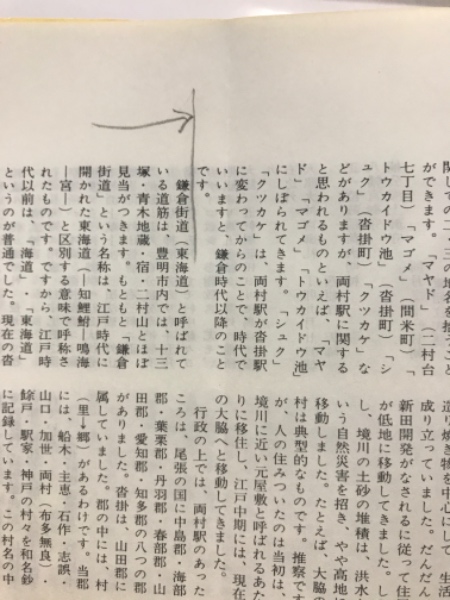 関しての、二、三の地名を拾うこと
ができます。「マヤド」（二村台
七丁目）「マゴメ」（間米町）「
トウカイドウ池」（沓掛町）「シ
ュク」（沓掛町）「クツカケ」な
どがありますが、両村駅に関する
と思われるものといえば、「マヤ
ド」「マゴメ」「トウカイドウ池」
にしぼられてきます。「シュク」
「クツカケ」は、両村駅が沓掛駅
に変わってからのことで、時代で
いいますと、鎌倉時代以降のこと
です。
鎌倉街道（東海道）と呼ばれて
いる道筋は、豊明市内では、十三
塚・青木地蔵・宿・二村山とほぼ
見当がつきます。もともと「鎌倉
街道」という名称は、江戸時代に
開かれた東海道（―知鯉鮒―鳴海
―宮―）と区別する意味で呼称さ
れたものです。ですから、江戸時
代以前は、「海道」「東海道」
というのが普通でした。現在の沓
造り焼き物を中心にして、生活
成り立っていました。だんだん
新田開発がなされるに従って住
が低地に移動してきました。し
し、境川の土砂の堆積は、洪水
いう自然災害を招き、やや高地
移動しました。たとえば、大脇の
村は典型的なものです。推察です
が、人の住みついたのは当初は、
境川に近い元屋敷と呼ばれるあた
りに移住し、江戸中期には、現在
の大脇へと移動してきました。
行政の上では、両村駅のあった
ころは、尾張の国に中島郡・海部
郡・葉栗郡・丹羽郡・春部郡・山
田郡・愛知郡・知多郡の八つの郡
がありました。沓掛は、山田郡に
属していました。郡の中には、村
（里→郷）があるわけです。当郡
には、船木・主恵・石作・志誤・
山口・加世・両村（布多無良）・
餘戸・駅家・神戸の村々を和名鈔
に記録しています。この村名の中